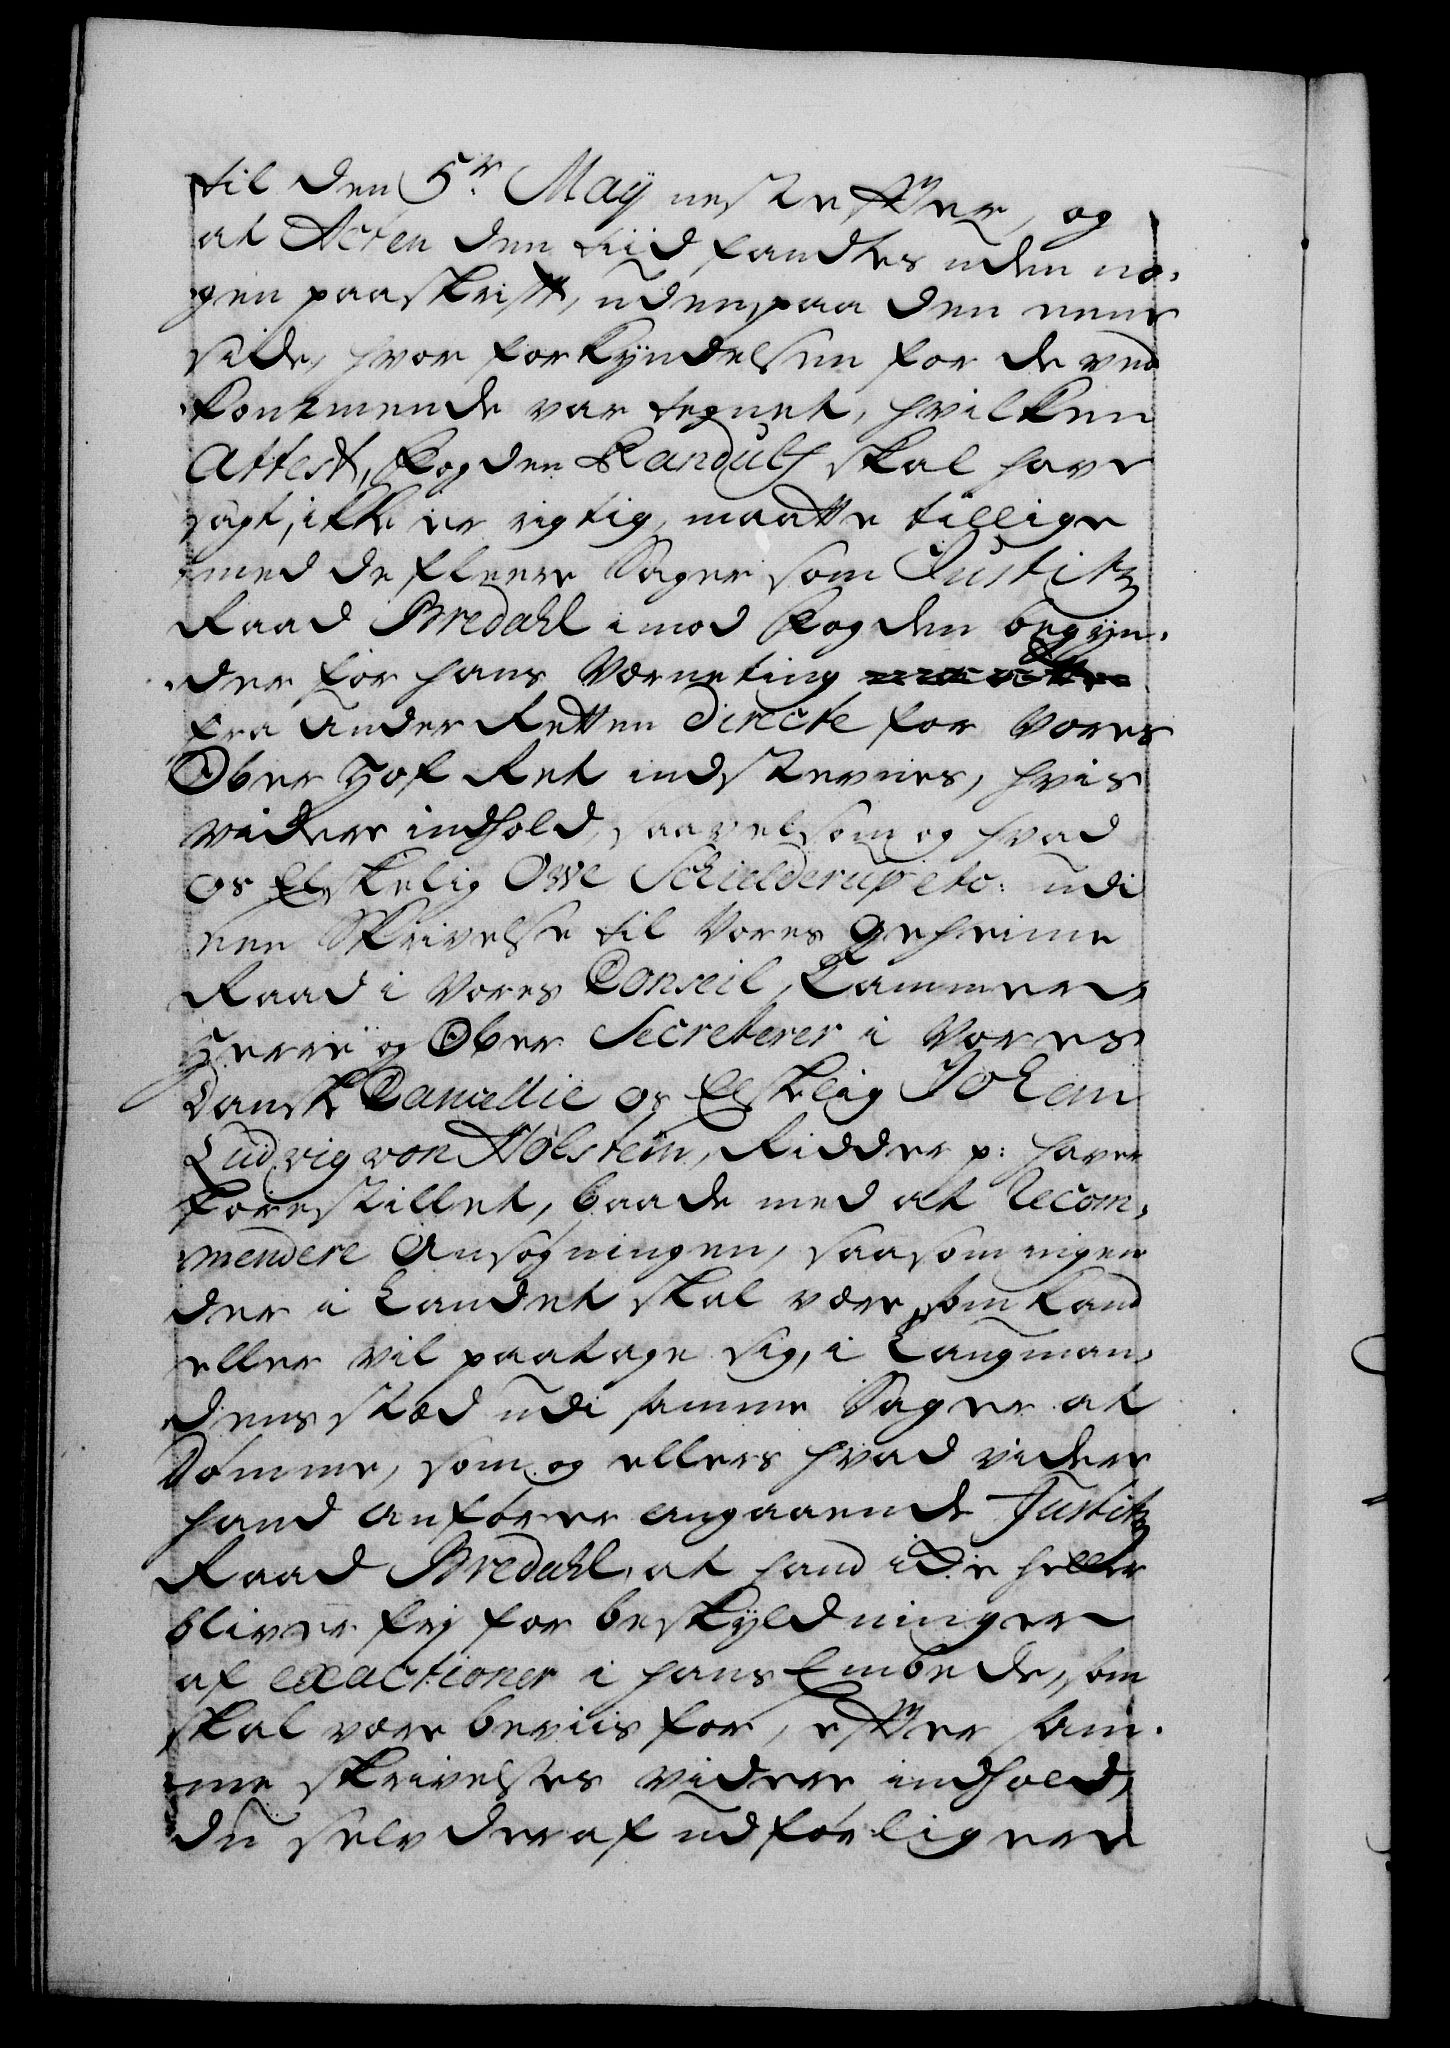 til den 5te May nestefter, og
at Acten den tiid fandtes uden no-
gen paaskrift, uden paa den eene
side, hvor forkyndelsen for de ved
kommende var tegnet, hvilken
Attest, Fogden Randulf skal have
sagt, ikke er rigtig, maatte tillige
med de fleere Sager som Justitz
Raad Bredahl imod Fogden begyn-
der for hans Værneting
fra Under Retten directe for Vores
Ober Hof Ret indstevnes, hvis
videre indhold, saavelsom og hvad
os Elskelig Owe Schielderup etc: udi
een Skrivelse til Vores Geheime
Raad i Vores Conseil, Cammer
Herre og Ober Secreterer i Vores
Danske Cancellie os Elskelig Johan
Ludvig von Holstein, Ridder p: haver
forestillet, baade med at Recom-
mendere Ansøgningen, saasom ingen
der i Landet skal være, som kand
eller vil paatage sig, i Laugman-
dens stæd udi samme Sager at
Dømme, som og ellers hvad videre
hand anfører angaaende Justitz
Raad Bredahl, at hand icke heller
bliver frj for beskyldninger
af exactioner i hans Embede, som
skal være beviis for, efter sam-
me skrivelses videre indhold,
du selv deraf udførligere